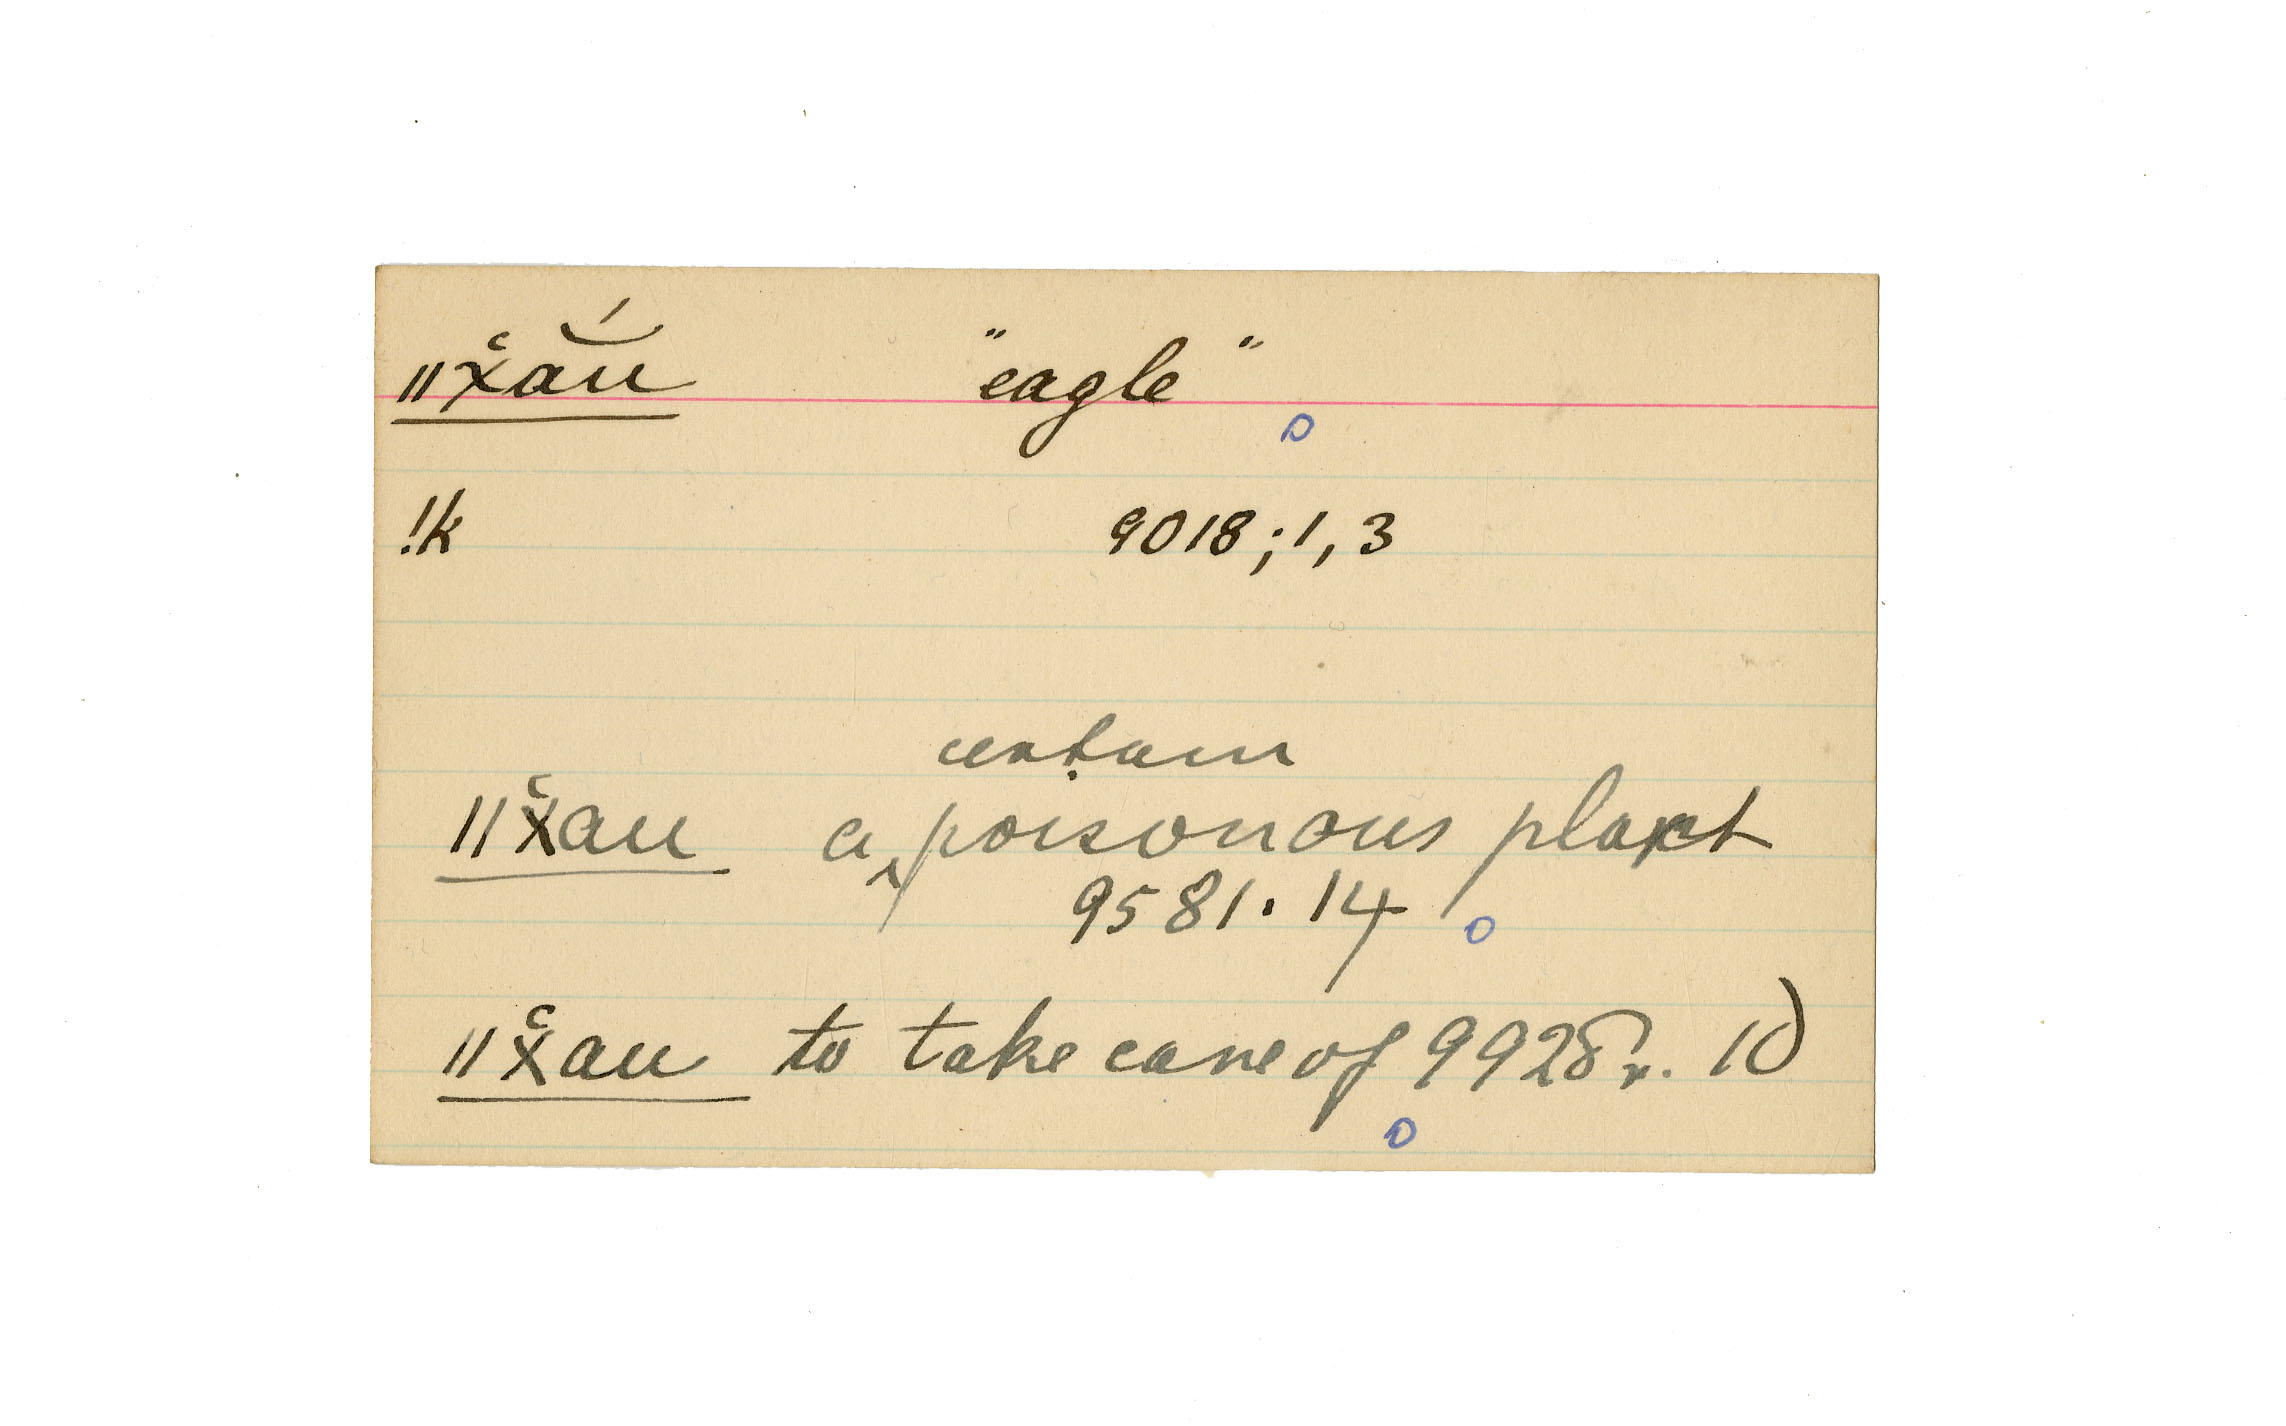 ǁx̌ʿăú̯ "eagle"
!k 9018; 1, 3
certain
ǁx̌ʿau a ‸ poisonous plant
9581. 14
ǁx̌ʿau to take care of 9928r. 10